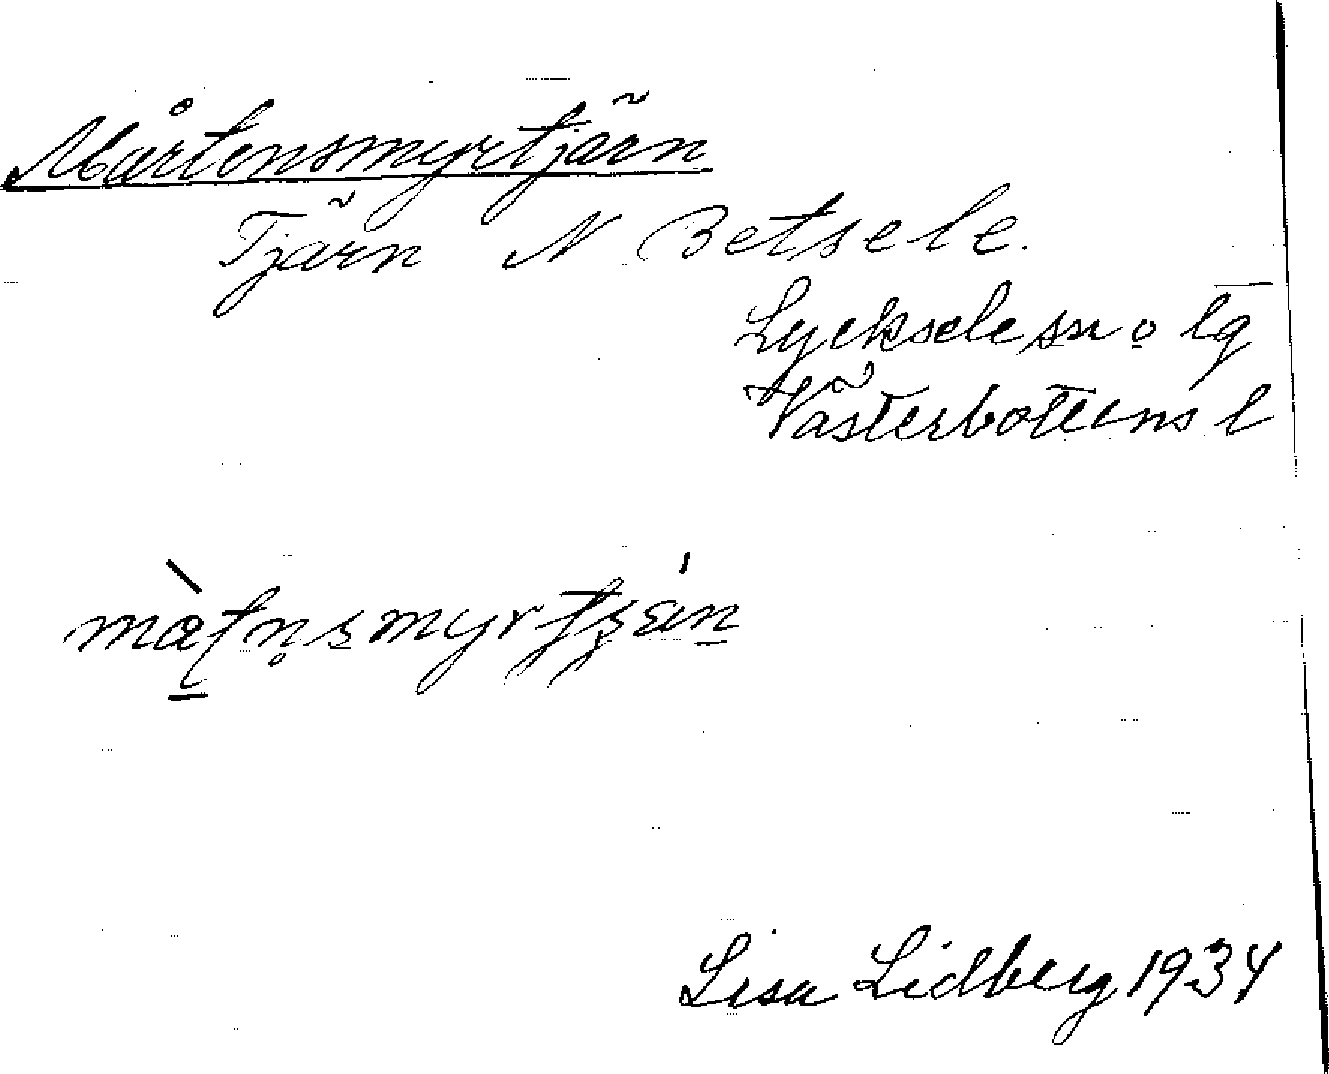 Mårtensmyrtjärn
Tjärn N Betsele.
Lycksele sn o lg
Västerbottens l
Lisa Lidberg 1934